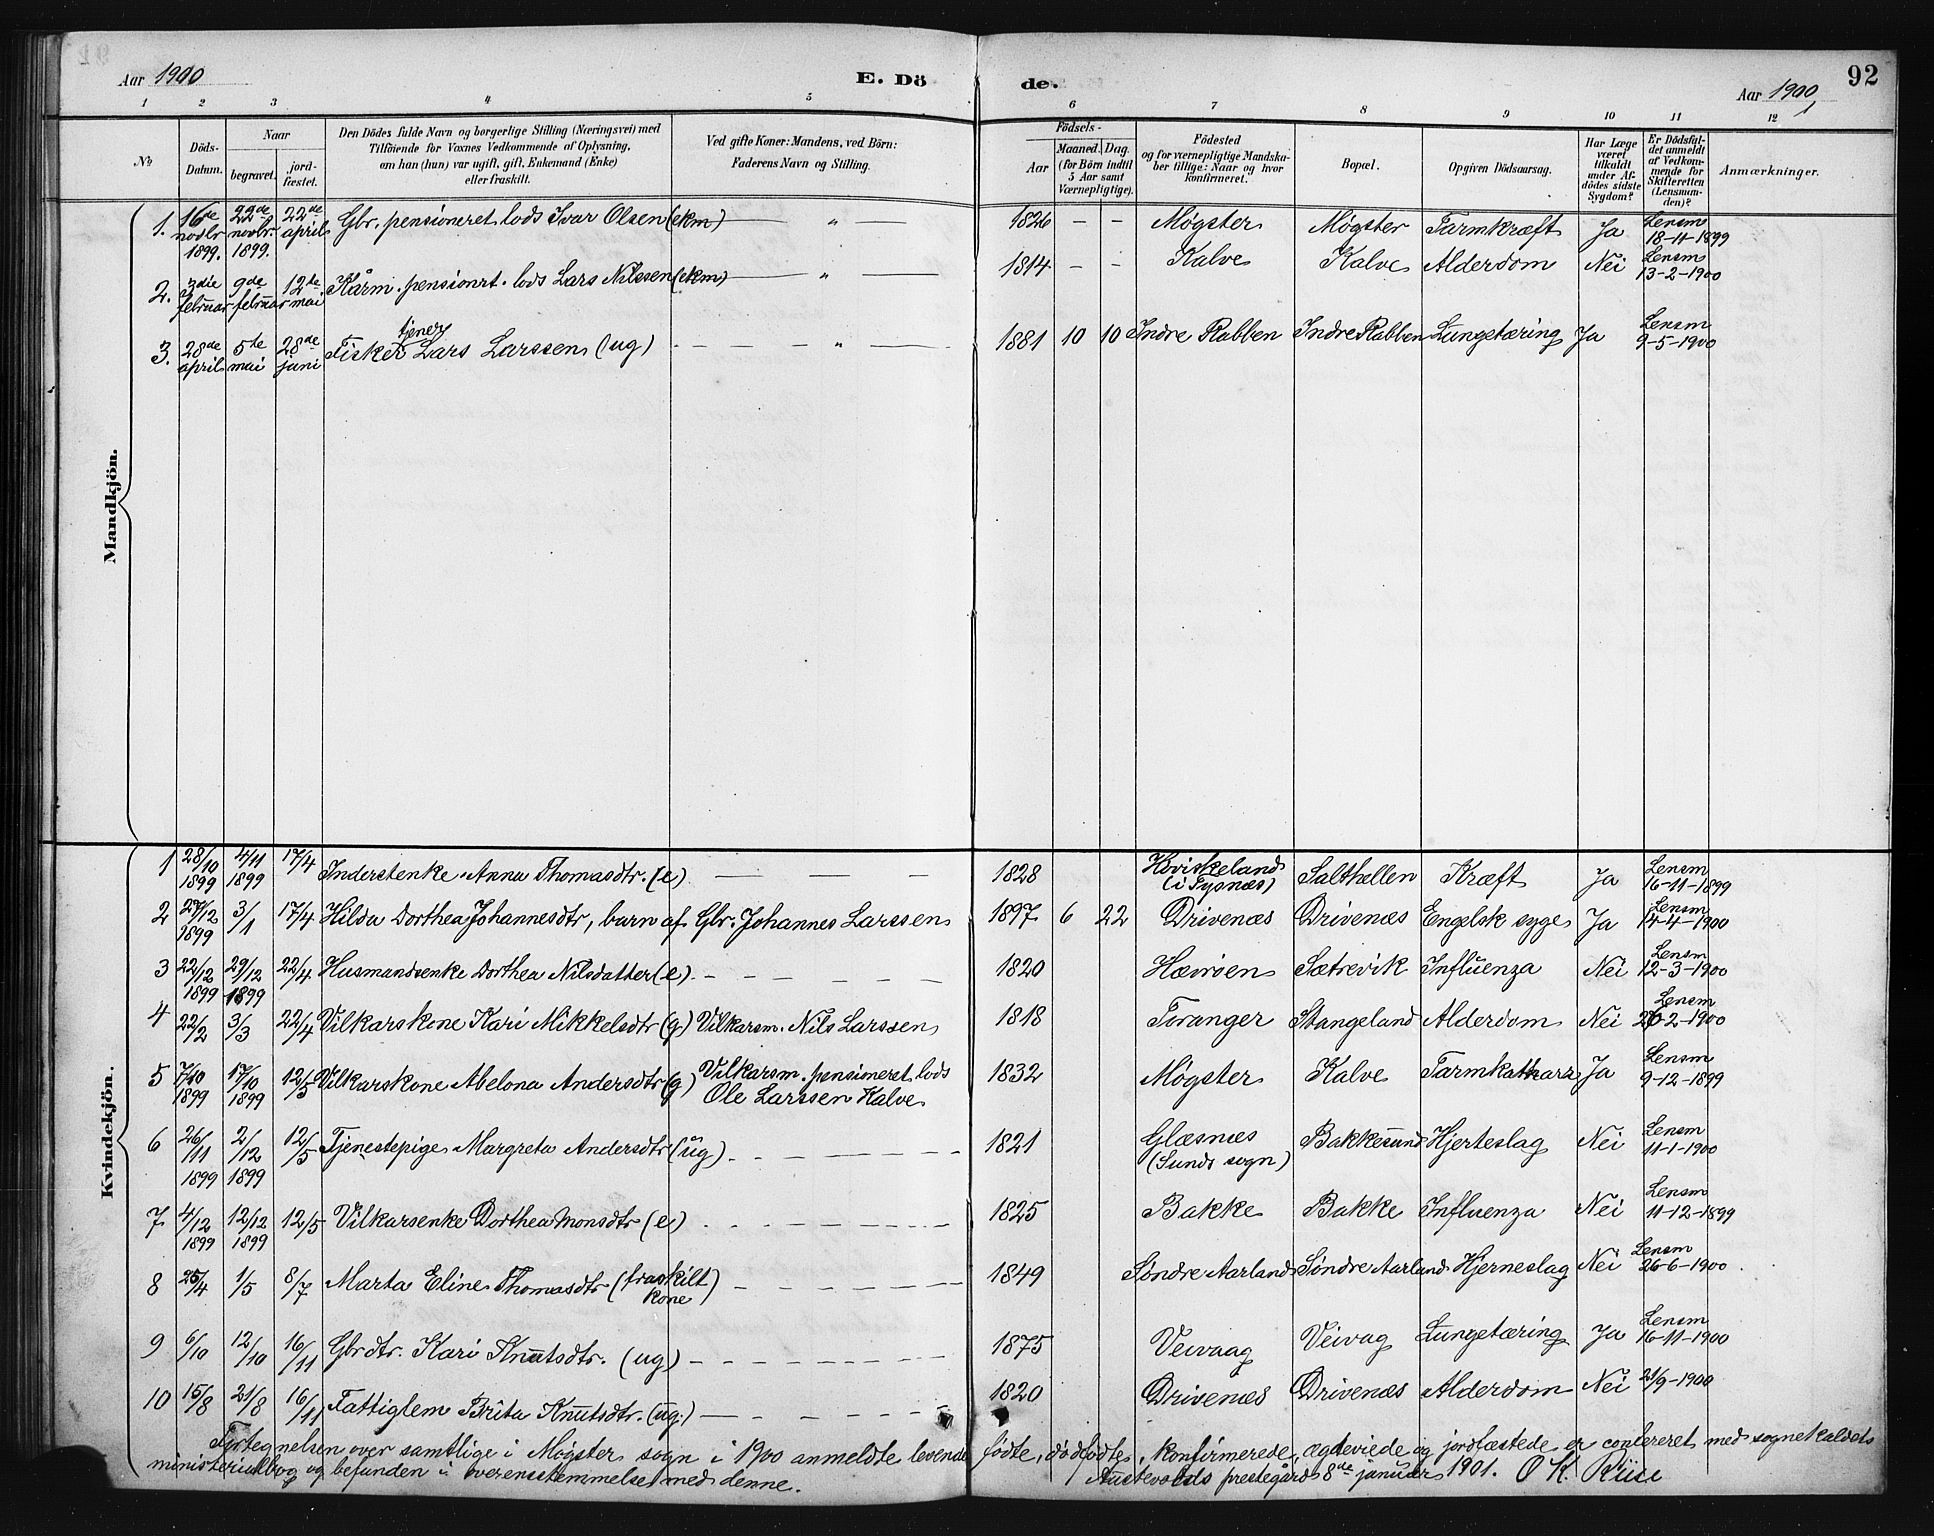 Aar 1900
E. Dö
de.
Aar 1900
92
1 2 3 4 5 6 7 8 9 10 11 12
No
Döds-Datum.
Naar
begravet.
jordfæstet.
Den Dödes fulde Navn og borgerlige Stilling (Næringsvei) med
Tilföiende for Voxnes Vedkommende af Oplysning,
om han (hun) var ugift, gift, Enkemand (Enke)
eller fraskilt.
Ved gifte Koner: Mandens, ved Börn:
Faderens Navn og Stilling.
Födsels-
Aar
Maaned. Dag.
(for Börn indtil
5 Aar samt
Værnepligtige).
Födested
og for værnepligtige Mandskaber tillige: Naar og hvor
konfirmeret.
Bopæl.
Opgiven Dödsaarsag.
Har Læge
været
tilkaldt
under Afdödes sidste
Sygdom?
Er Dödsfaldet anmeldt
af Vedkommende for
Skifteretten
(Lensmanden)?
Anmærkninger.
Mandkjön.
1. 16de novbr 1899. 22de novbr. 1899. 22de april Gbr. pensioneret lods Ivar Olsen (ekm) — „ — 1826 – – Møgster Møgster Tarmkræft Ja Lensm 18-11-1899
2. 3die februar 9de februar 12te mai Kårm. pensionrt. lods Lars Nilssen (ekm) — „ — 1814 – – Kalve Kalve Alderdom Nei Lensm 13-2-1900
3. 28de april 5te mai 28de juni Fisker tjener Lars Larssen (ug) – – – „ – – 1881 10 10 Indre Rabben Indre Rabben Lungetæring Ja Lensm 9-5-1900
Kvindekjön.
1 28/10 1899 4/11 1899 17/4 Inderstenke Anna Thomasdtr. (e) — — — 1828 Hviskeland (i Tysnæs) Salthellen Kræft Ja Lensm 16-11-1899
2 27/12 1899 3/1 17/4 Hilda Dorthea Johannesdtr, barn af Gbr. Johannes Larssen 1897 6 22 Drivenæs Drivenæs Engelsk syge Ja Lensm 14-4-1900
3 22/12 1899 29/12 1899 22/4 Husmandsenke Dorthea Nilsdatter (e) – – – 1820 Hævrøen Sætrevik Influenza Nei Lensm 12-3-1900
4 22/2 3/3 22/4 Vilkarskone Kari Mikkelsdtr (g) Vilkarsm. Nils Larssen 1818 Toranger Stangeland Alderdom Nei Lensm 26-2-1900
5 7/10 1899 17/10 1899 12/5 Vilkarskone Abelona Andersdtr (g) Vilkarsm. pensioneret lods Ole Larssen Kalve 1832 Møgster Kalve Tarmkathara Ja Lensm 9-12-1899
6 26/11 1899 2/12 1899 12/5 Tjenestepige Margreta Andersdtr (ug) – – – 1821 Glæsnæs (Sunds sogn) Bakkesund Hjerteslag Nei Lensm 11-1-1900
7 4/12 1899 12/12 1899 12/5 Vilkarsenke Dorthea Monsdtr (e) – – – 1825 Bakke Bakke Influenza Nei Lensm 11-12-1899
8 25/4 1/5 8/7 Marta Eline Thomasdtr (fraskilt kone) – – – 1849 Søndre Aarland Søndre Aarland Hjerneslag Nei Lensm 26-6-1900
9 6/10 12/10 16/11 Gbrdtr. Kari Knutsdtr. (ug) – – – 1875 Veivaag Veivag Lungetæring Ja Lensm 16-11-1900
10 15/8 21/8 16/11 Fattiglem Brita Knutsdtr. (ug.) — – – 1820 Drivenæs Drivenæs Alderdom Nei 21/9-1900
Fortegnelsen over samtlige i Møgster sogn i 1900 anmeldte levende fødte, dødfødte, konfirmerede, ægteviede og jordfæstede er confereret med sognekaldets
ministerialbog og befunden i overensstemmelse med denne. Austevolds prestegård 8de januar 1901. O K. Riise